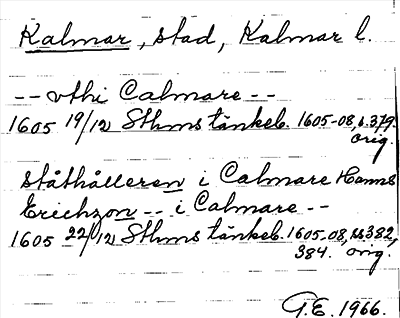 Kalmar, stad, Kalmar l.
-- vthi Calmare --
1605 19/12 Sthms tänkeb. 1605-08, s. 379. orig.
Ståthålleren i Calmare Hanns
Erichzon -- i Calmare --
1605 22/12 Sthms tänkeb. 1605-08, ss 382,
384. orig.
G.E. 1966.